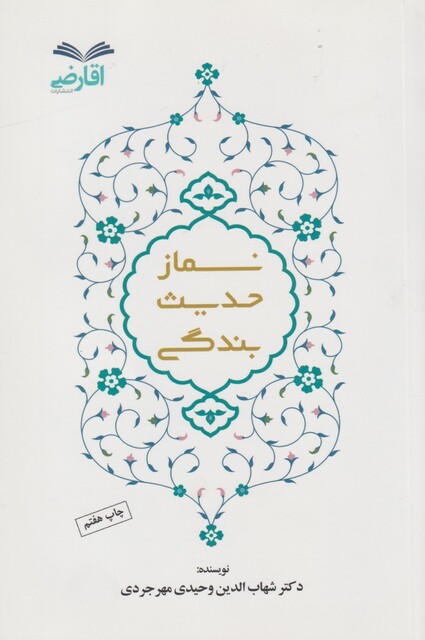 اقارضی
انتشارات
نماز
حدیث
بندگی
چاپ هفتم
نویسنده:
دکتر شهاب الدین وحیدی مهرجردی